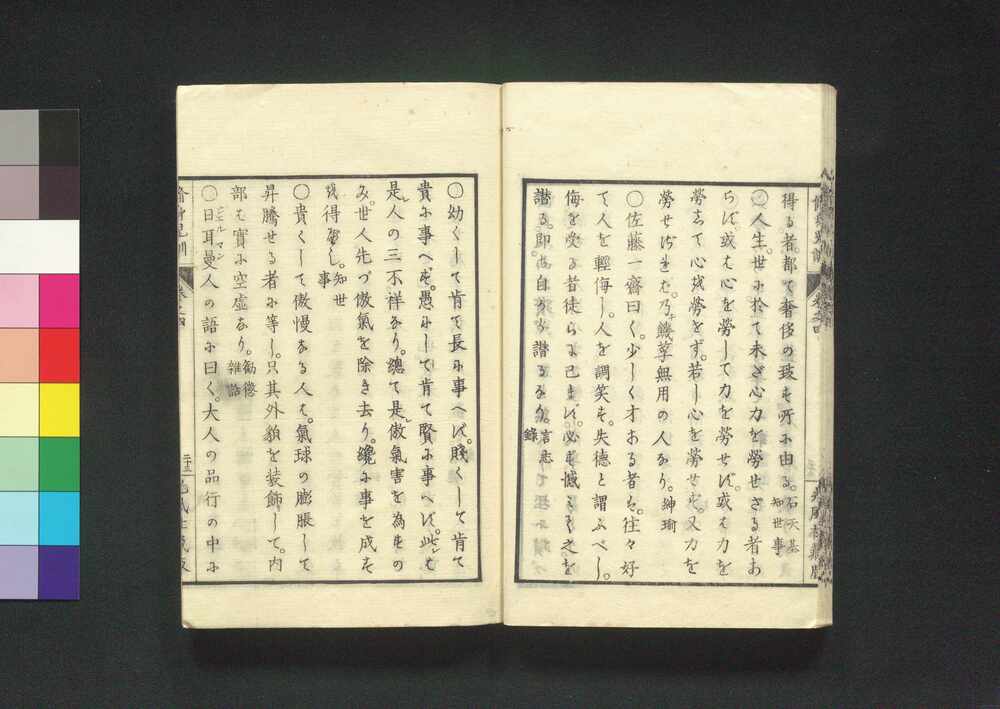 得る者。都て奢侈の致す所に由る。石天基
知世事
○人生世に於て未だ心力を勞せざる者あ
らず。或は心を勞して力を勞せず。或は力を
勞して心を勞せず。若し心を勞せず。又力を
勞せざれば。乃チ饑莩無用の人なり。紳瑜
○佐藤一齋曰く。少しく才ある者は。往々好
て人を輕侮し。人を調笑す。失德と謂ふべし。
侮を受る者徒らに已まず。必す憾こそ之を
譖る。即ち自から譖るなり。言志
錄
○幼くして肯て長に事へず。賤くして肯て
貴に事へず。愚にして肯て賢に事へず。此レ
是レ人の三不祥なり。總て是レ傲氣害を為すの
み。世人先づ傲氣を除き去り。纔に事を成す
を得べし。知世
事
○貴くして傲慢なる人は。氣球の膨脹して
昇騰せる者に等し。只其外貌を装飾して。内
部は實に空虚なり。勧懲
雑話
○日耳曼人の語に曰く。大人の品行の中に
ゼルマン
卷之四
二十三